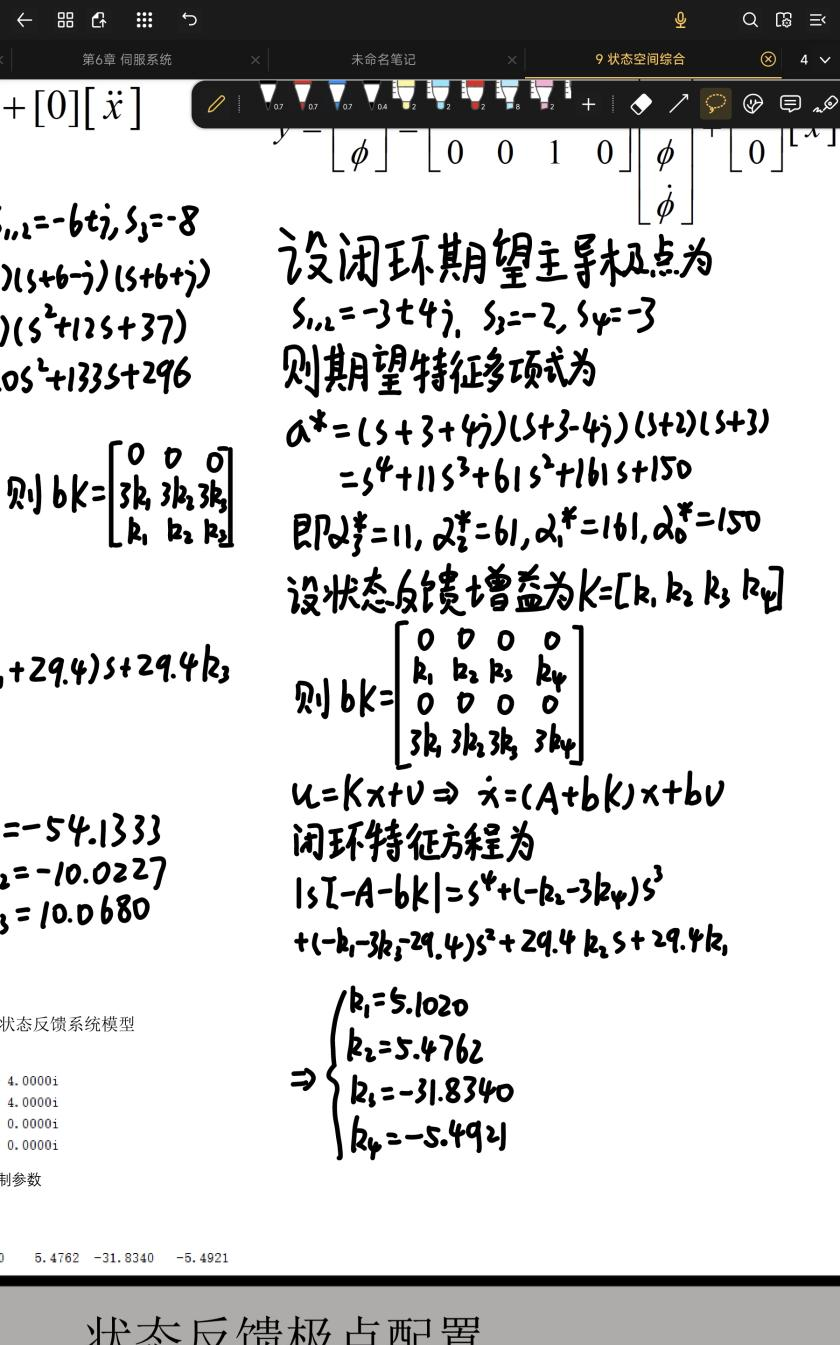 第6章 伺服系统
未命名笔记
9 状态空间综合
4
0.7 0.7 0.7 0.4 2 2 2 8 2
+[0][ẍ]
ϕ
0 0 1 0
ϕ
ϕ̇
0
=-6±j, S₃=-8
)(s+6-j)(s+6+j)
)(s²+12s+37)
0s²+133s+296
则bK=[0 0 0
3k₁ 3k₂ 3k₃
k₁ k₂ k₃]
+29.4)s+29.4k₃
=-54.1333
₂=-10.0227
₃=10.0680
状态反馈系统模型
4.0000i
4.0000i
0.0000i
0.0000i
制参数
5.4762 -31.8340 -5.4921
设闭环期望主导极点为
S₁,₂=-3±4j, S₃=-2, S₄=-3
则期望特征多项式为
a*=(s+3+4j)(s+3-4j)(s+2)(s+3)
=s⁴+11s³+61s²+161s+150
即α₃*=11, α₂*=61, α₁*=161, α₀*=150
设状态反馈增益为K=[k₁ k₂ k₃ k₄]
则bK=[0 0 0 0
k₁ k₂ k₃ k₄
0 0 0 0
3k₁ 3k₂ 3k₃ 3k₄]
u=Kx+v⇒ẋ=(A+bK)x+bv
闭环特征方程为
|sI-A-bK|=s⁴+(-k₂-3k₄)s³
+(-k₁-3k₃-29.4)s²+29.4k₂s+29.4k₁
⇒{k₁=5.1020
k₂=5.4762
k₃=-31.8340
k₄=-5.4921
状态反馈极点配置